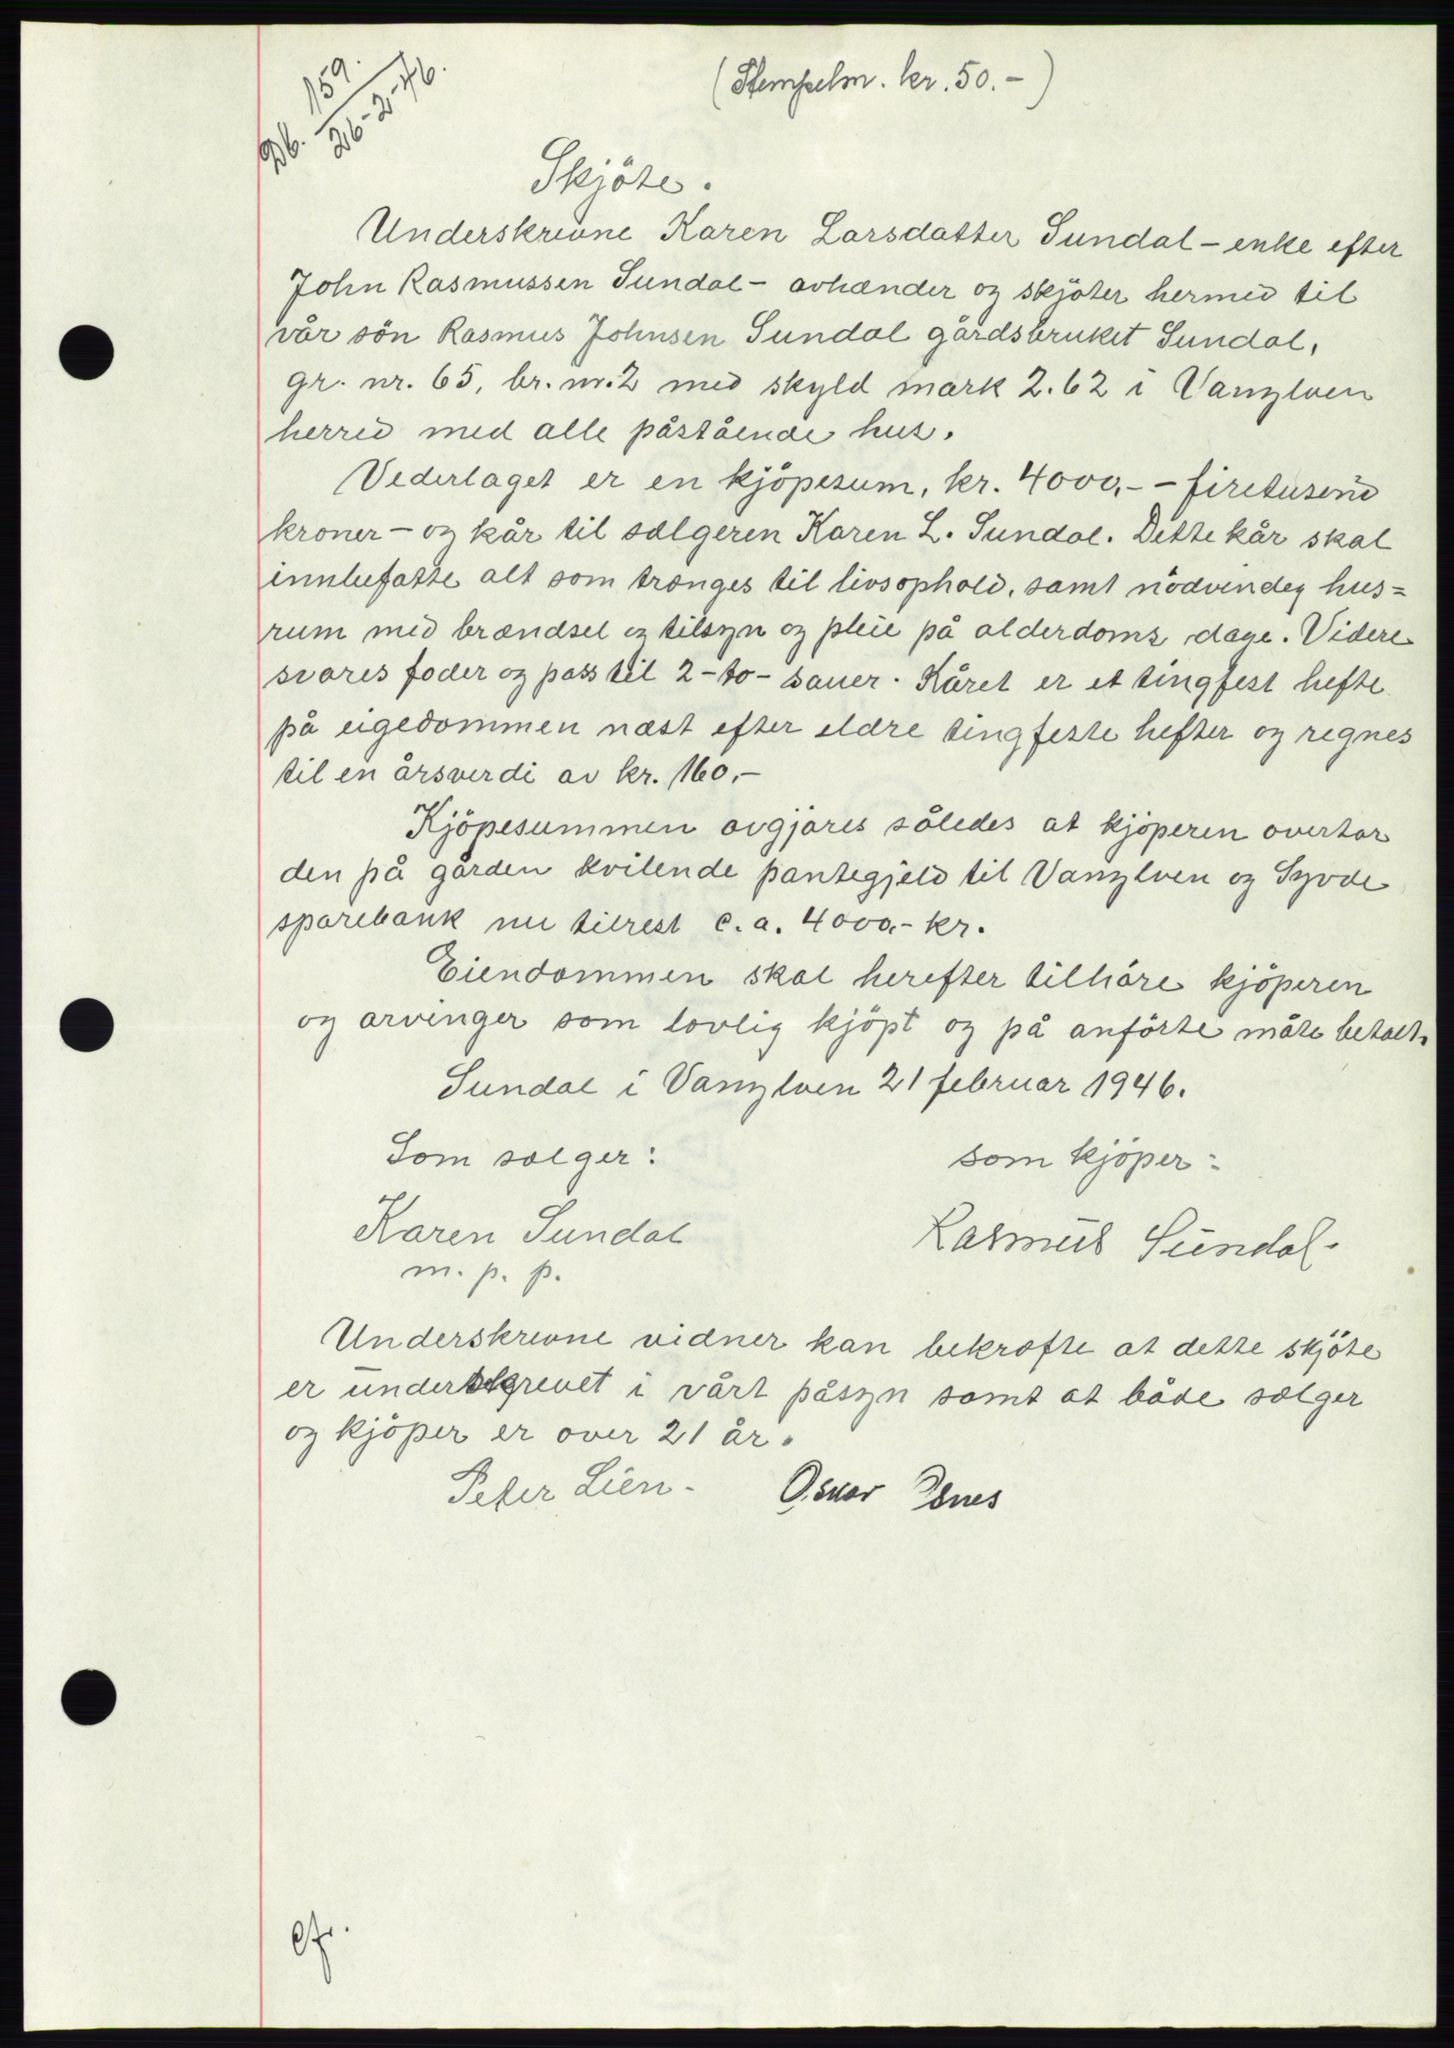 Db. 159.
26-2-46.
(Stempelm. kr. 50.-)
Skjöte.
Underskrevne Karen Larsdatter Sundal - enke efter
John Rasmussen Sundal - avhænder og skjöter hermed til
vår sön Rasmus Johnsen Sundal gårdsbruket Sundal,
gr. nr. 65, br. nr. 2 med skyld mark 2.62 i Vanylven
herred med alle påstående hus.
Vederlaget er en kjöpesum, kr. 4000,- - firetusend
kroner - og kår til sælgeren Karen L. Sundal. Dette kår skal
innbefatte alt som trænges til livsophold, samt nödvendig hus=
rum med brændsel og tilsyn og pleie på alderdoms dage. Videre
svares foder og pass til 2 - to - sauer. Kåret er et tingfest hefte
på eigedommen næst efter eldre tingfeste hefter og regnes
til en årsverdi av kr. 160,-
Kjöpesummen avgjöres således at kjöperen overtar
den på gården kvilende pantegjeld til Vanylven og Syvde
sparebank nu tilrest c.a. 4000,- kr.
Eiendommen skal herefter tilhöre kjöperen
og arvinger som lovlig kjöpt og på anförte måte betalt.
Sundal i Vanylven 21 februar 1946.
Som sælger: som kjöper:
Karen Sundal Rasmus Sundal.
m. p. p.
Underskrevne vidner kan bekræfte at dette skjöte
er underskrevet i vårt påsyn samt at både sælger
og kjöper er over 21 år.
Peter Lien. Oskar